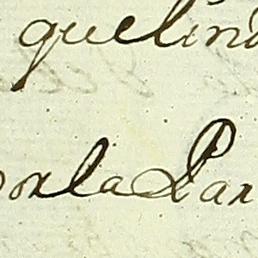 quelind
por la Par